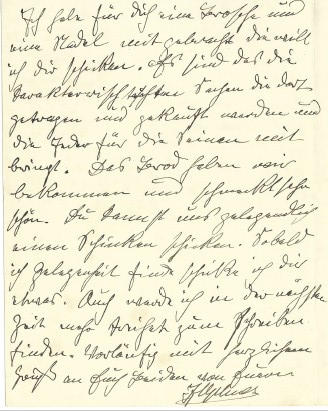 Ich habe für Dich eine Brosche und
eine Nadel mit gebracht die will
ich dir schicken. Es sind das die
Karakterwischtichsten Sachen die dort
getragen und gekauft werden und
die Jeder für die Seinen mit
bringt. Das Brod haben wir
bekommen und schmeckt sehr
schön. Du kannst uns gelegendlich
einen Schinken schicken. Sobald
ich Gelegenheit finde schicke ich dir
etwas. Auch werde ich in der nächsten
Zeit mehr Freiheit zum Schreiben
finden. Vorläufig mit herzlichem
Gruß an Euch beiden von Eurem